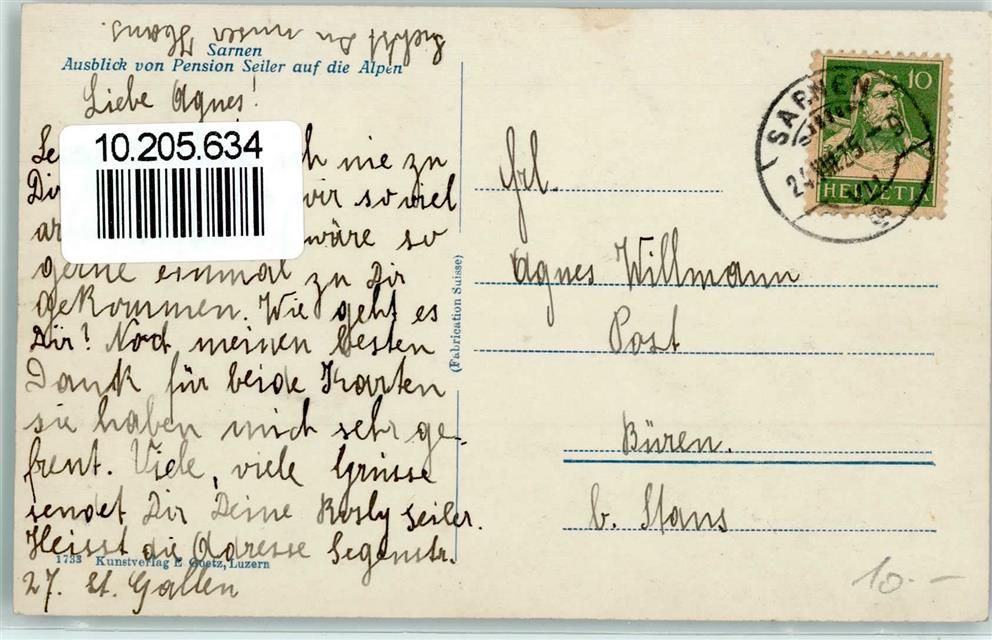 Siehst Du unser Haus.
Sarnen
Ausblick von Pension Seiler auf die Alpen
Liebe Agnes!
10.205.634
nie zu
Dir wir so viel
wäre so
gerne einmal zu Dir
gekommen. Wie geht es
Dir? Noch meinen besten
Dank für beide Karten
sie haben mich sehr ge-
freut. Viele, viele Grüsse
sendet Dir Deine Rosly Seiler.
Heisst die Adresse Segenstr.
1733 Kunstverlag E. Goetz, Luzern
27. St. Gallen
(Fabrication Suisse)
SARNEN
10
HELVETIA
Frl.
Agnes Willmann
Post
Büren.
b. Stans
10.-